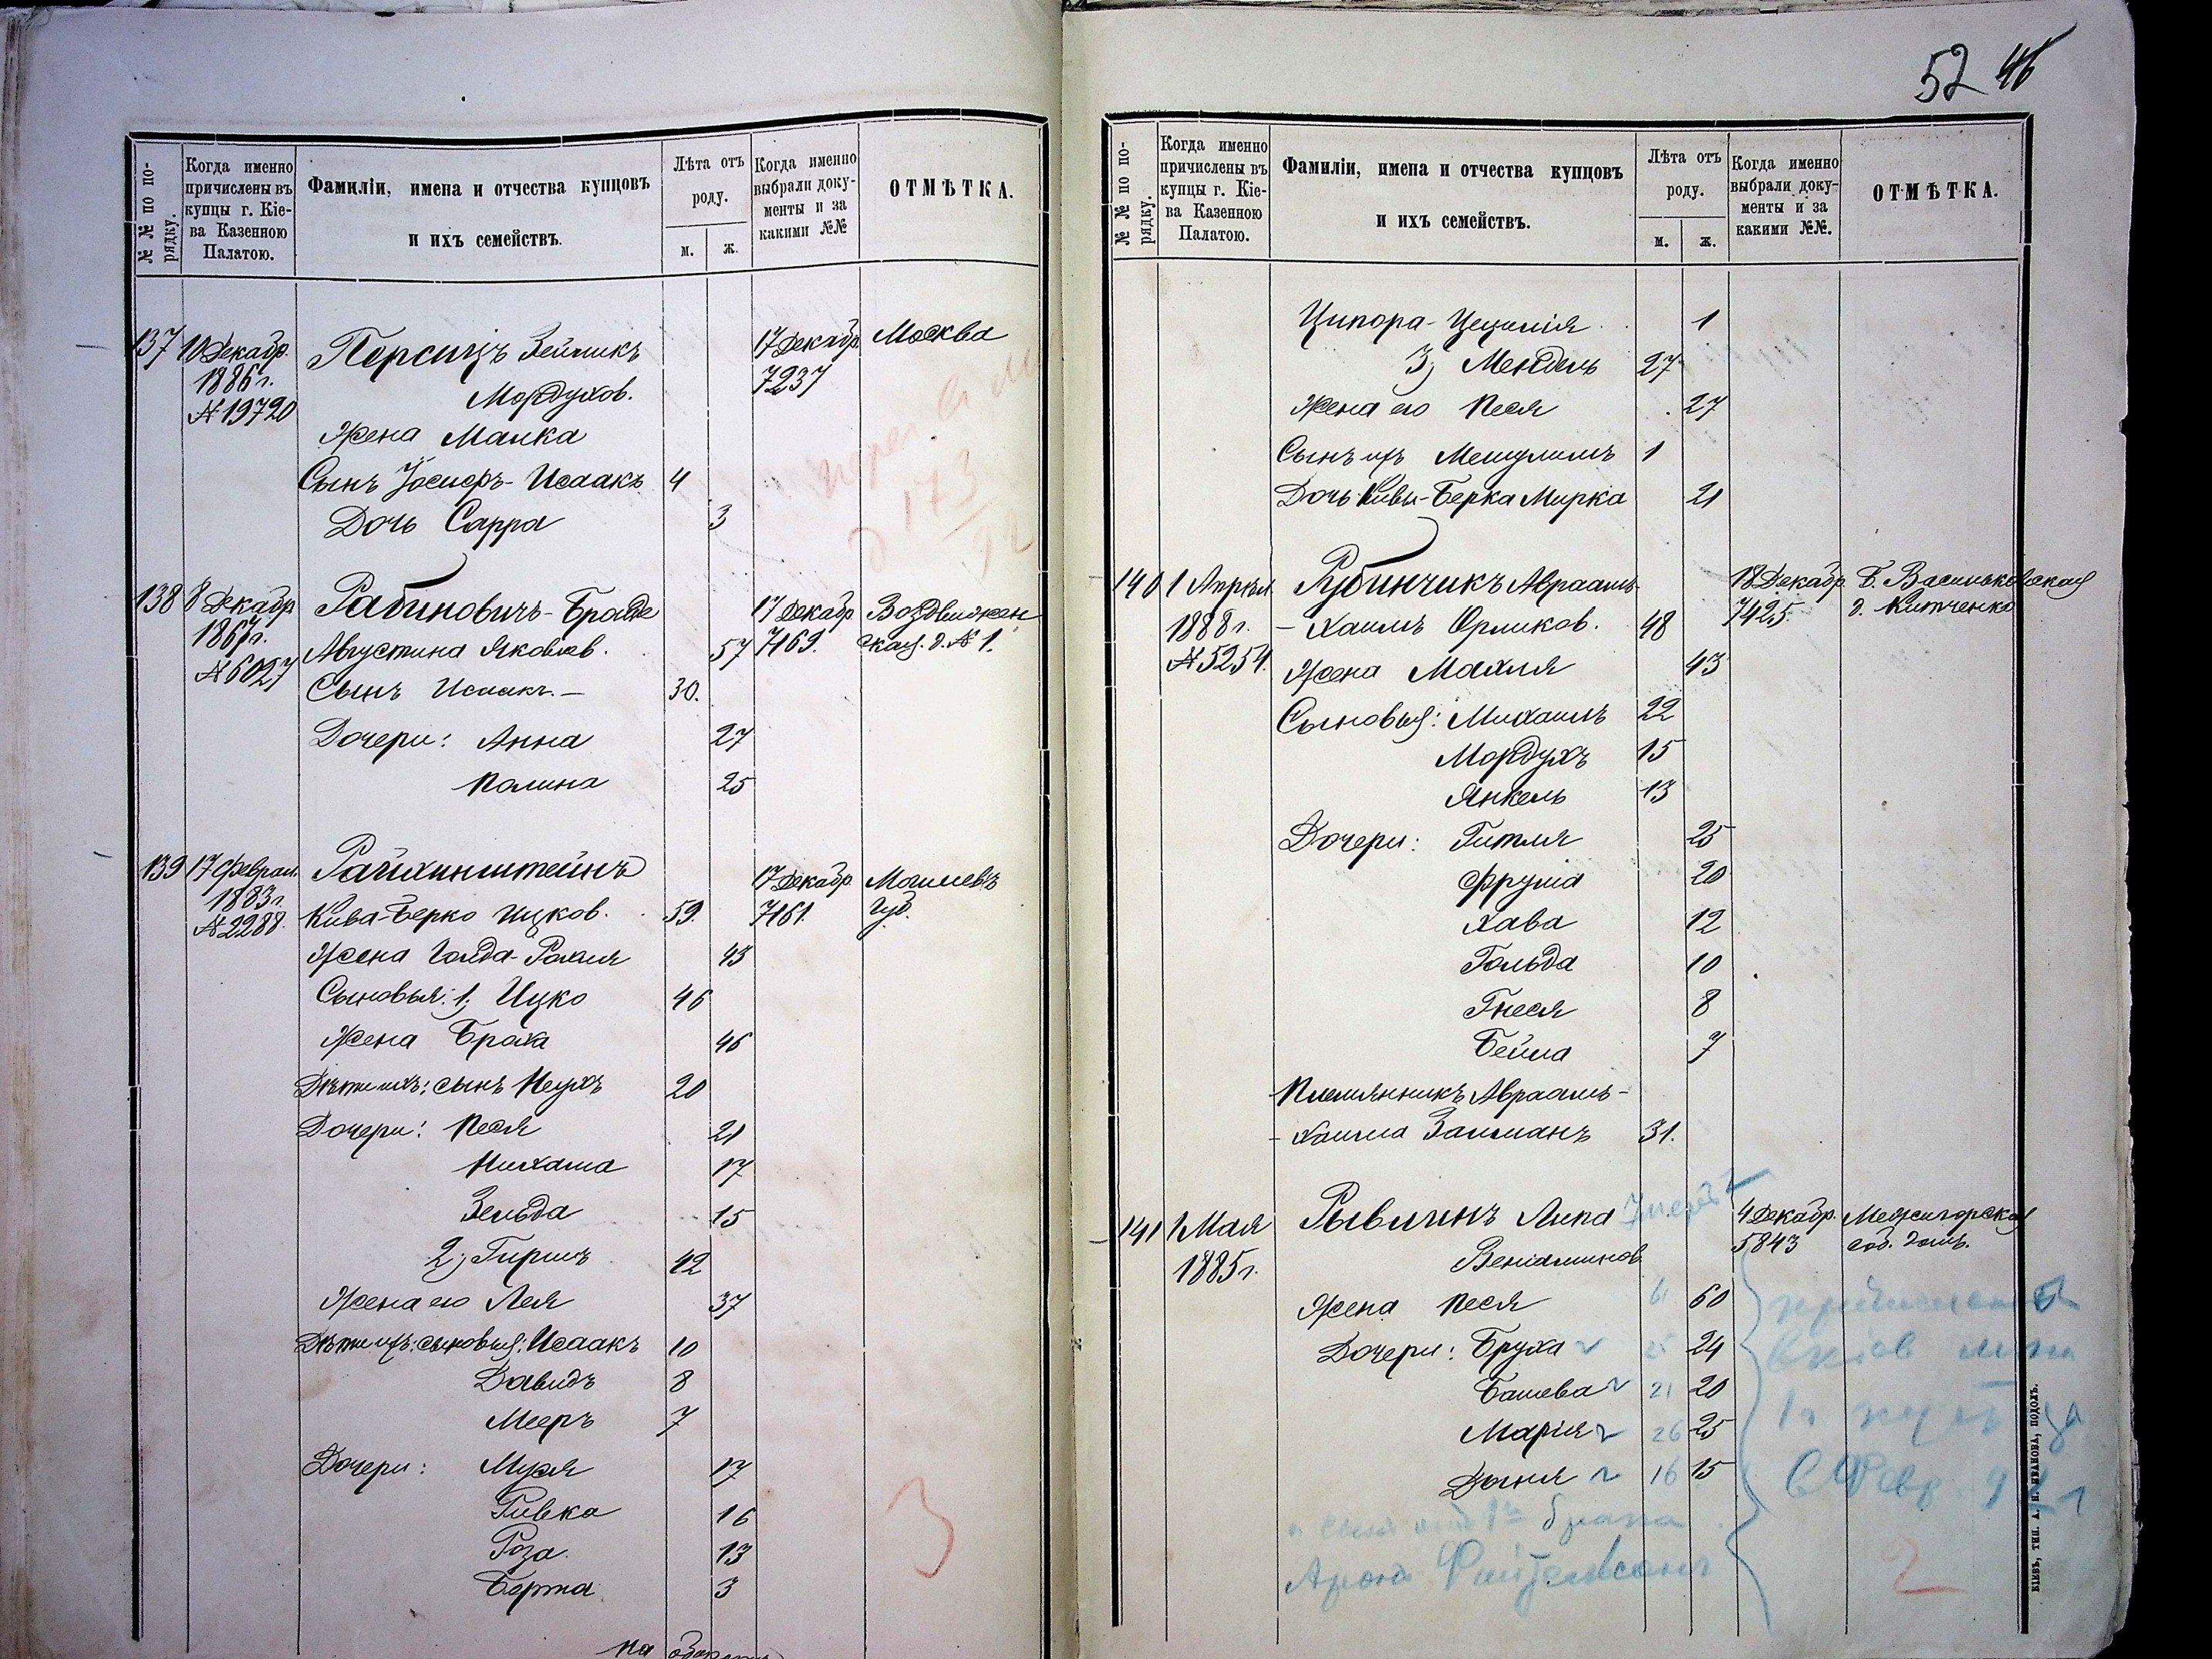 52 46
№ № по порядку.
Когда именно причислены въ купцы г. Кіева Казенною Палатою.
Фамиліи, имена и отчества купцовъ и ихъ семействъ.
Лѣта отъ роду.
м. ж.
Когда именно выбрали документы и за какими №№
ОТМѢТКА.
137 10 Декабр. Персицъ Зейликъ 17 Декабр. Москва
1886 г. Мордухов. 7237
№ 19720
Жена Малка
Сынъ Іосифъ-Исаакъ 4
Дочь Сарра 3
173
92
138 8 Декабр. Рабиновичъ-Браде 17 Декабр. Воздвижен
1867 г. Августина Яковлев. 57 7169. ская. д. № 1.
№ 6027
Сынъ Исаакъ.— 30.
Дочери: Анна 27
Полина 25
139 17 Феврал. Райхинштейнъ 17 Декабр. Могилевъ
1883 г. Кива-Берко Ицков. 59. 7161. Губ.
№ 2288.
Жена Голда-Рохля 43
Сыновья: 1, Ицко 46
Жена Браха 46
Дѣти ихъ: сынъ Неухъ 20
Дочери: Песя 21
Михама 17
Зельда 15
2, Гиршъ 42
Жена его Лея 37
Дѣти ихъ: сыновья: Исаакъ 10
Давидъ 8
Мееръ 7
Дочери: Муся 17
Ривка 16
Роза. 13
Берта 3
3
на оборотѣ
№ № по порядку.
Когда именно причислены въ купцы г. Кіева Казенною Палатою.
Фамиліи, имена и отчества купцовъ и ихъ семействъ.
Лѣта отъ роду.
м. ж.
Когда именно выбрали документы и за какими №№.
ОТМѢТКА.
Ципора-Цецилія 1
3, Мендель 27
Жена его Песя 27
Сынъ ихъ Мешулимъ 1
Дочь Кивы-Берка Мирка 21
140 1 Апрѣл. Рубинчикъ Авраамъ- 18 Декабр. Б. Васильковская
1888 г. - Хаимъ Орликов. 48 7425. д. Китченко
№ 5254.
Жена Махля 43
Сыновья: Михаилъ 22
Мордухъ 15
Янкель 13
Дочери: Гитля 25
Фрума 20
Хава 12
Гольда 10
Гнеся 8
Бейла 7
Племянникъ Авраамъ-
- Хаима Залманъ 31.
141 1 Мая Рывлинъ Липа 4 Декабр. Межигорская
1885 г. Веніаминов 5843 соб. домъ.
Жена Песя 61 60
Дочери: Бруха 25 24
Башева 21 20
Марія 26 25
Дыня 16 15
брака
Арона
2
КІЕВЪ, ТИП. А. Н. ИВАНОВА, ПОДОЛЪ.